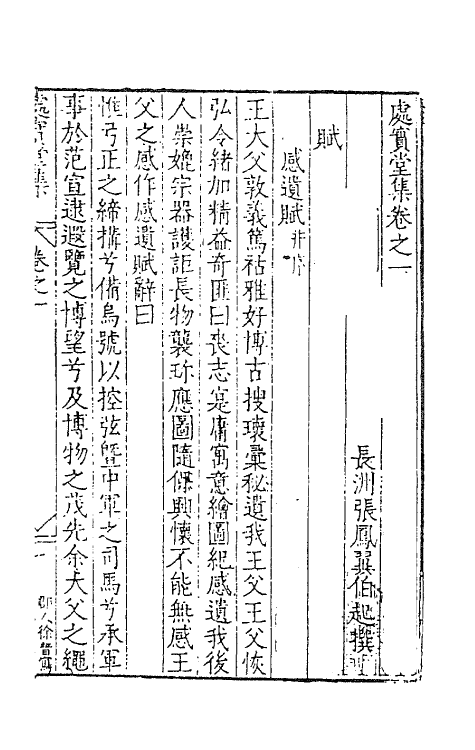 處實堂集卷之一
長洲張鳳翼伯起撰
賦
感遺賦并序
王大父敦義篤祜雅好博古搜瓌彙秘遺我王父王父恢
弘令緒加精益奇匪曰喪志寔庸寓意繪圖紀感遺我後
人崇媲宗器譏詎長物襲珎應圖隨傢興懷不能無感王
父之感作感遺賦辭曰
惟弓正之締搆兮備烏號以控弦曁中軍之司馬兮承軍
事於范宣逮遐覽之博望兮及博物之茂先余大父之繩
處實堂集
卷之一
一